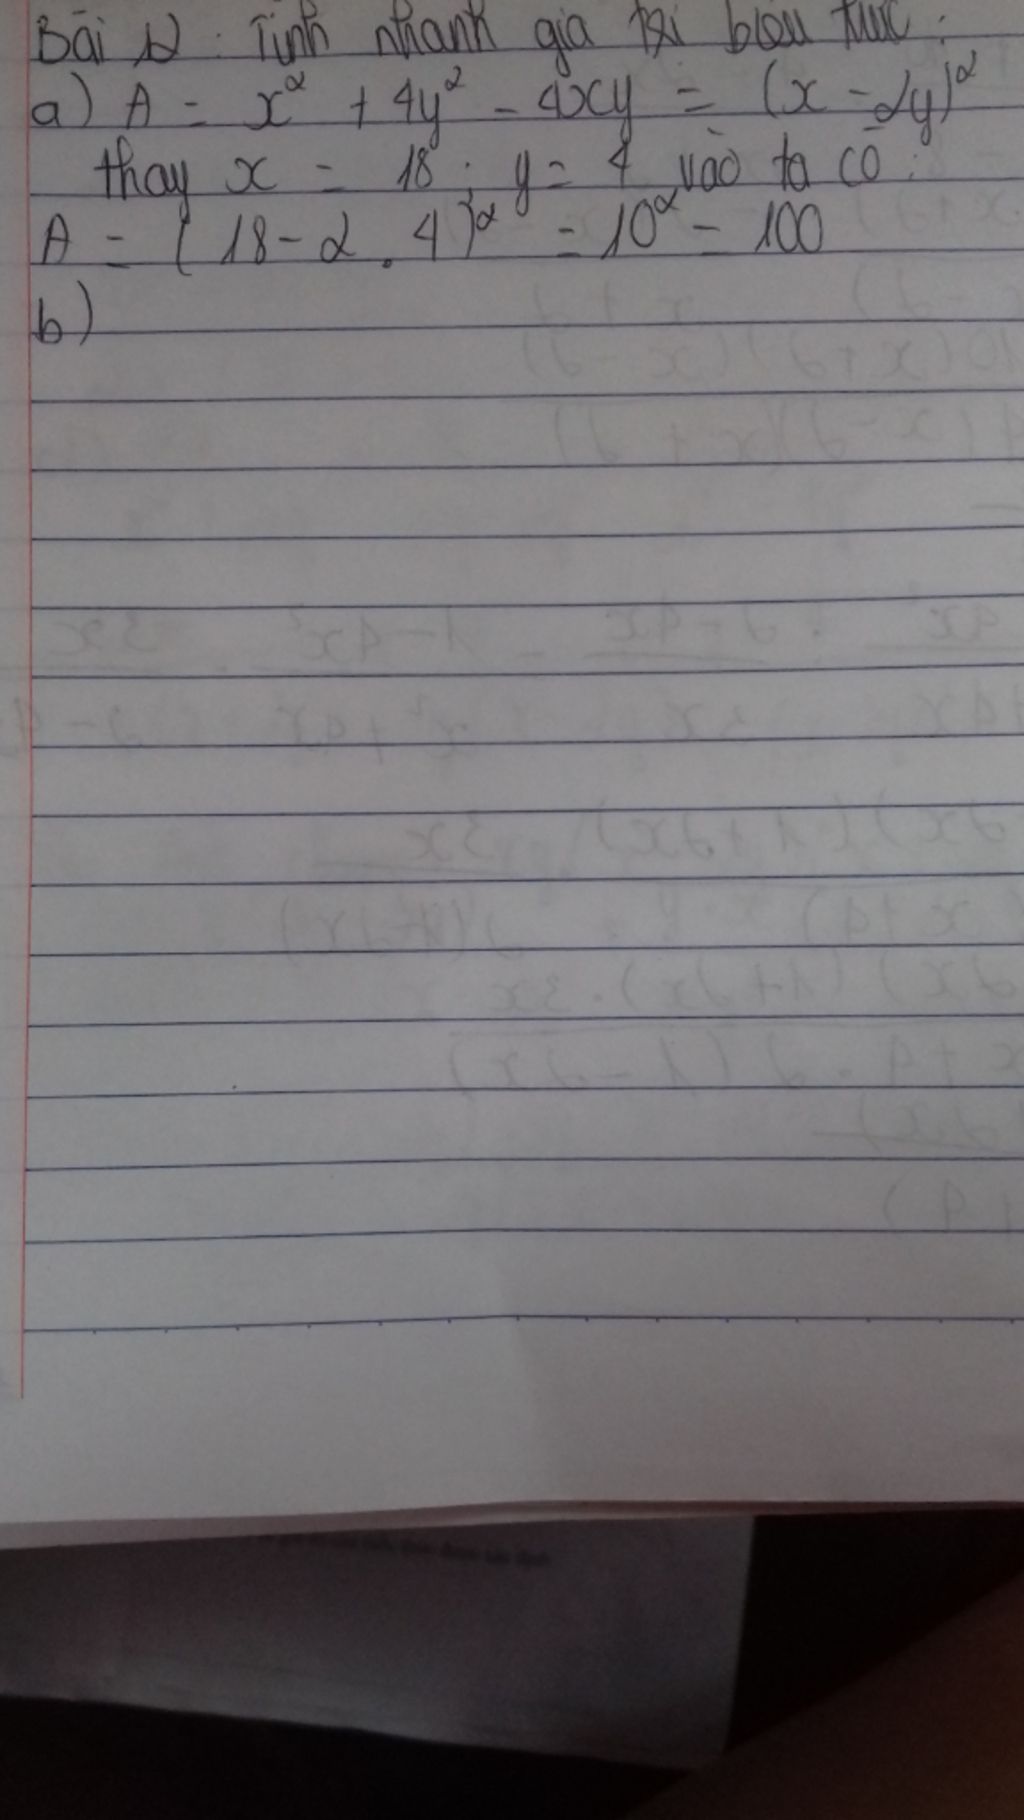 Bài 2: Tính nhanh giá trị biểu thức:
a) A = x² + 4y² - 4xy = (x - 2y)²
thay x = 18; y = 4 vào ta có:
A = (18 - 2.4)² = 10² = 100
b)